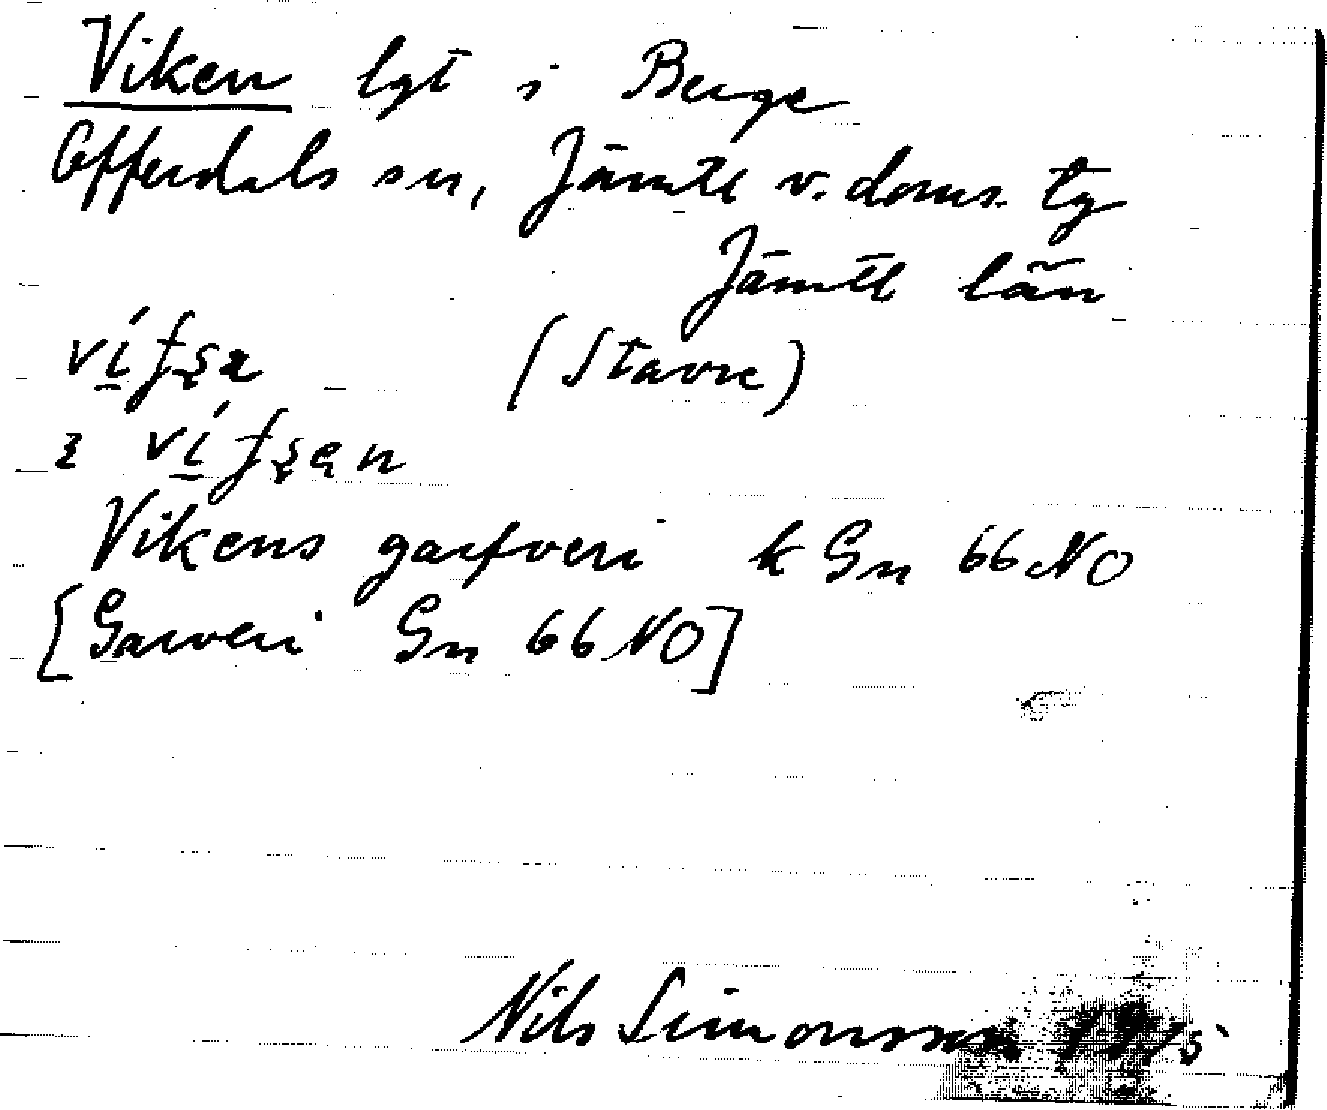 Viken lgt i Berge
Offerdals sn, Jämtl v. doms. tg
Jämtl län
(Stavre)
Vikens garfveri k Gn 66 NO
[Garveri Gn 66 NO]
Nils Simonsson